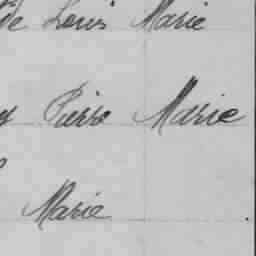 de Louis Marie
Pierre Marie
Marie